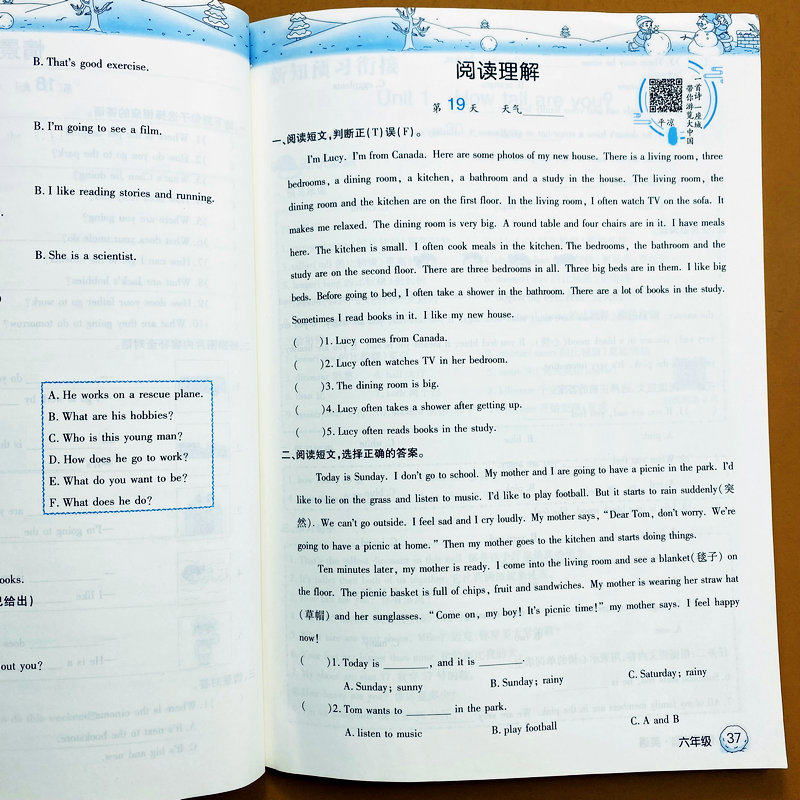 B. That's good exercise.
B. I'm going to see a film.
B. I like reading stories and running.
B. She is a scientist.
A. He works on a rescue plane.
B. What are his hobbies?
C. Who is this young man?
D. How does he go to work?
E. What do you want to be?
F. What does he do?
ooks.
给出)
out you?
阅读理解
第 19 天 天气
一首诗 一座城
带你游览大中国
平凉
一、阅读短文,判断正(T)误(F)。
I'm Lucy. I'm from Canada. Here are some photos of my new house. There is a living room, three
bedrooms, a dining room, a kitchen, a bathroom and a study in the house. The living room, the
dining room and the kitchen are on the first floor. In the living room, I often watch TV on the sofa. It
makes me relaxed. The dining room is very big. A round table and four chairs are in it. I have meals
here. The kitchen is small. I often cook meals in the kitchen. The bedrooms, the bathroom and the
study are on the second floor. There are three bedrooms in all. Three big beds are in them. I like big
beds. Before going to bed, I often take a shower in the bathroom. There are a lot of books in the study.
Sometimes I read books in it. I like my new house.
( )1. Lucy comes from Canada.
( )2. Lucy often watches TV in her bedroom.
( )3. The dining room is big.
( )4. Lucy often takes a shower after getting up.
( )5. Lucy often reads books in the study.
二、阅读短文,选择正确的答案。
Today is Sunday. I don't go to school. My mother and I are going to have a picnic in the park. I'd
like to lie on the grass and listen to music. I'd like to play football. But it starts to rain suddenly(突
然). We can't go outside. I feel sad and I cry loudly. My mother says, "Dear Tom, don't worry. We're
going to have a picnic at home." Then my mother goes to the kitchen and starts doing things.
Ten minutes later, my mother is ready. I come into the living room and see a blanket(毯子) on
the floor. The picnic basket is full of chips, fruit and sandwiches. My mother is wearing her straw hat
(草帽) and her sunglasses. "Come on, my boy! It's picnic time!" my mother says. I feel happy
now!
( )1. Today is ________, and it is ________.
A. Sunday; sunny B. Sunday; rainy C. Saturday; rainy
( )2. Tom wants to ________ in the park.
A. listen to music B. play football C. A and B
六年级 37